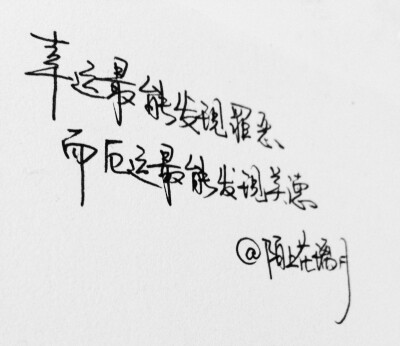 幸运最能发现罪恶
而厄运最能发现美德
@陌上花语月